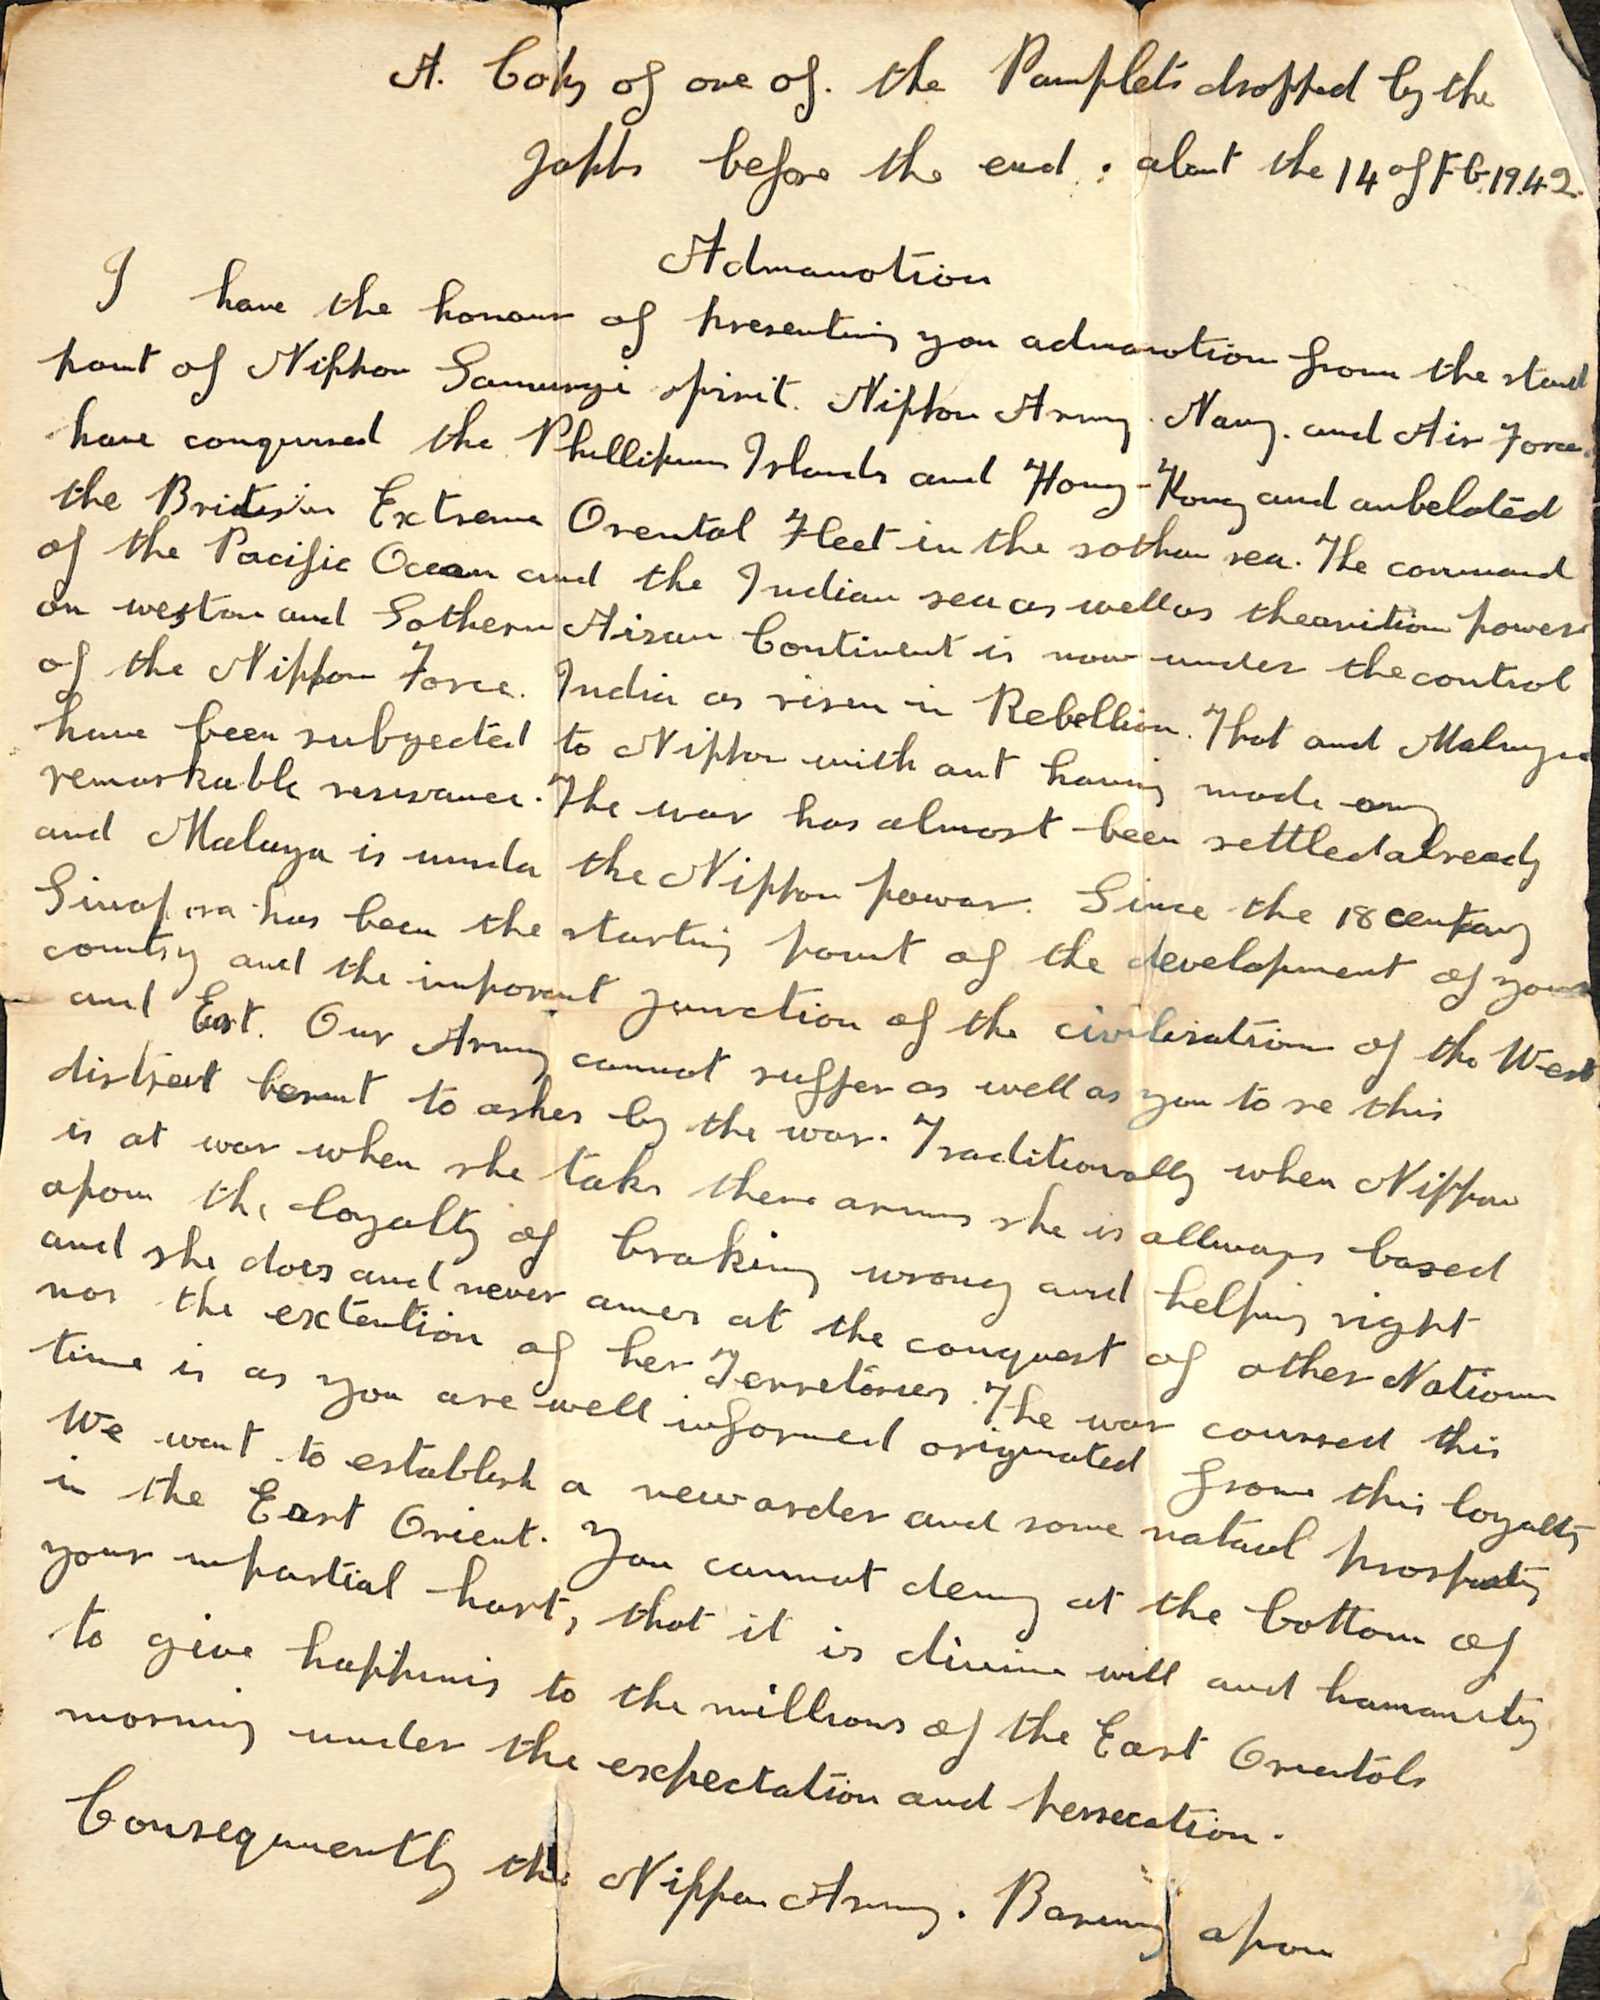 A. Coky of one of. the Pamplets dropped by the
Japps before the end. : about the 14 of Fb. 1942.
Admanotion
I have the honour of presenting you admanotion from the stand
point of Nippon Samuryi spirit. Nippon Army. Navy. and Air Force.
have conqured the Phillipuns Islands and Hong-Kong and anbelated
the Extreme Orental Fleet in the sothan sea. The command
of the Pacific Ocean and the Indian sea as well as the avition power
on weston and Sothern Aisan Continent is now under the control
of the Nippon Force. India as risen in Rebellion. That and Malaya
have been subyected to Nippon with out having made any
remarkable resisvance. The war has almost been settled already
and Malaya is unnda the Nippon powar. Since the 18 centuary
Sinapora has been the starting point of the development of your
country and the imporant yunction of the civilisation of the West
and East. Our Army cannot suffer as well as you to se this
distject bernt to ashes by the war. Traditionally when Nippon
is at war when she takes there arms she is allways based
apon the loyalty of braking wrong and helping right
and she does and never ames at the conquest of other Nations
nor the extention of her Terretories. The war coursed this
time is as you are well informed origniated from this loyalty
We want to establish a new order and some nataul prospaity
in the East Orient. You cannot deny at the bottom of
your inpartial hart, that it is divine will and hamanity
to give happinis to the millions of the East Orientals
morning under the expectation and persecation.
Consequnently the Nippon Army. Baring apon